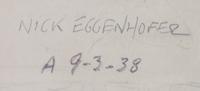 NICK EGGENHOFER
A 9-3-38